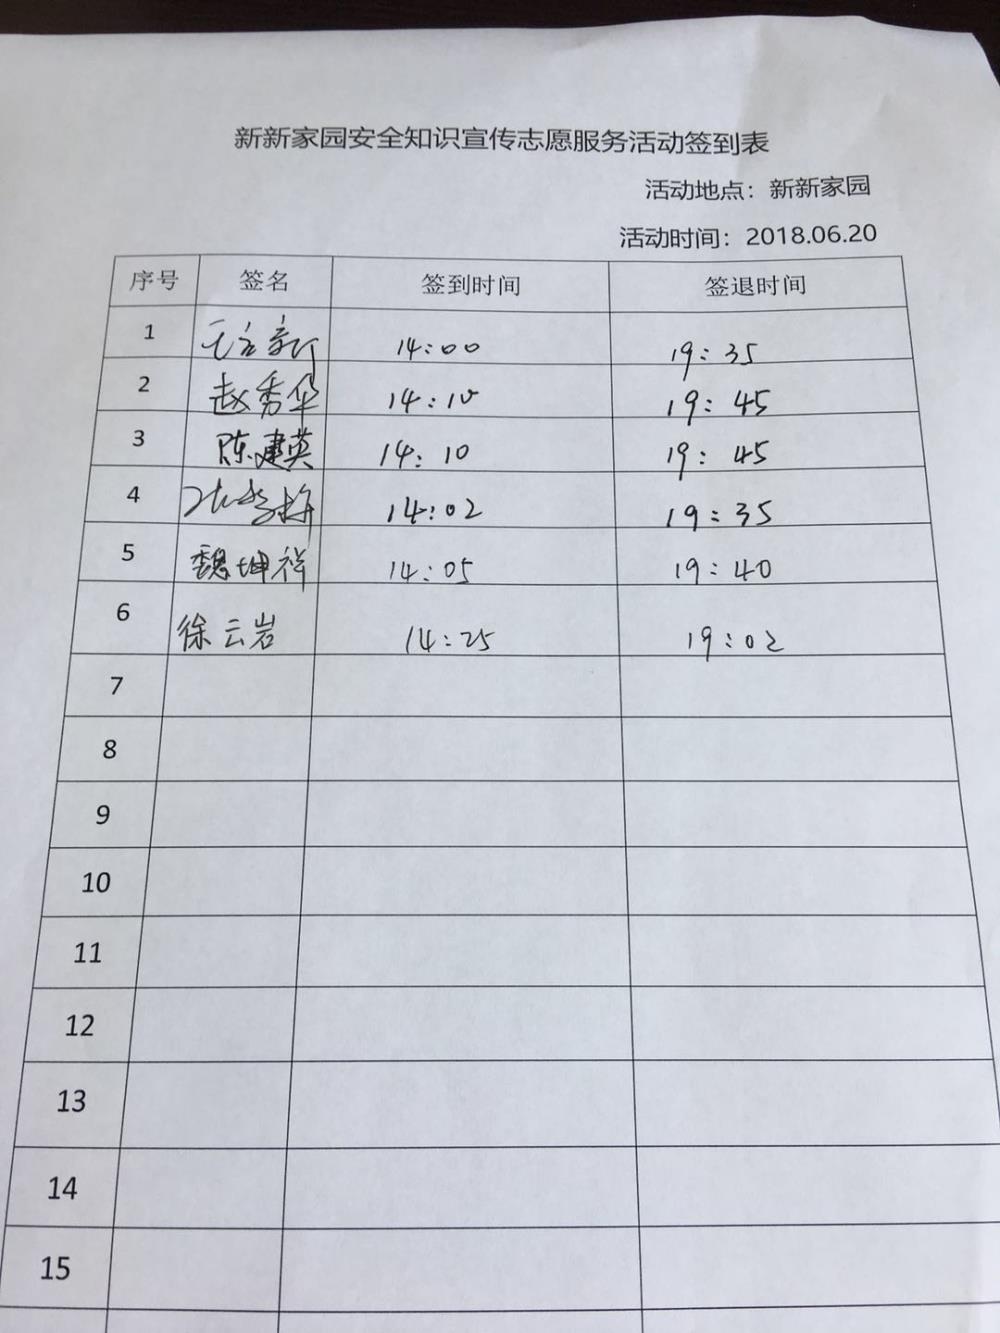 新新家园安全知识宣传志愿服务活动签到表
活动地点：新新家园
活动时间：2018.06.20
序号 签名 签到时间 签退时间
1 14:00 19:35
2 赵秀华 14:10 19:45
3 陈建英 14:10 19:45
4 14:02 19:35
5 魏坤祥 14:05 19:40
6 徐云岩 14:25 19:02
7
8
9
10
11
12
13
14
15